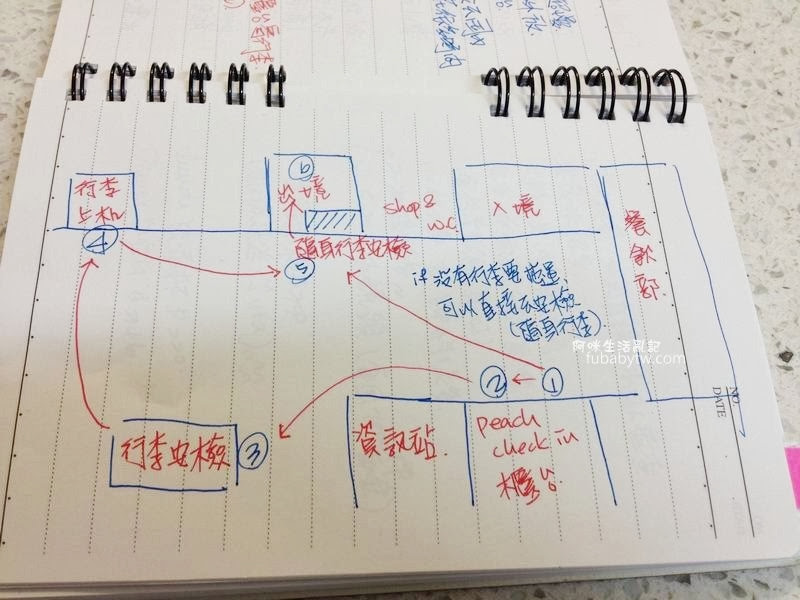 行李
上机
④
⑥
出境
shop &
w.c
入境
餐飲部
隨身行李安檢
⑤
if 沒有行李要放置,
可以直接去安檢
(隨身行李).
阿咪生活剮記
fubabytw.com
② ← ①
行李安檢 ③
資訊站.
peach
check in
櫃台
NO.
DATE